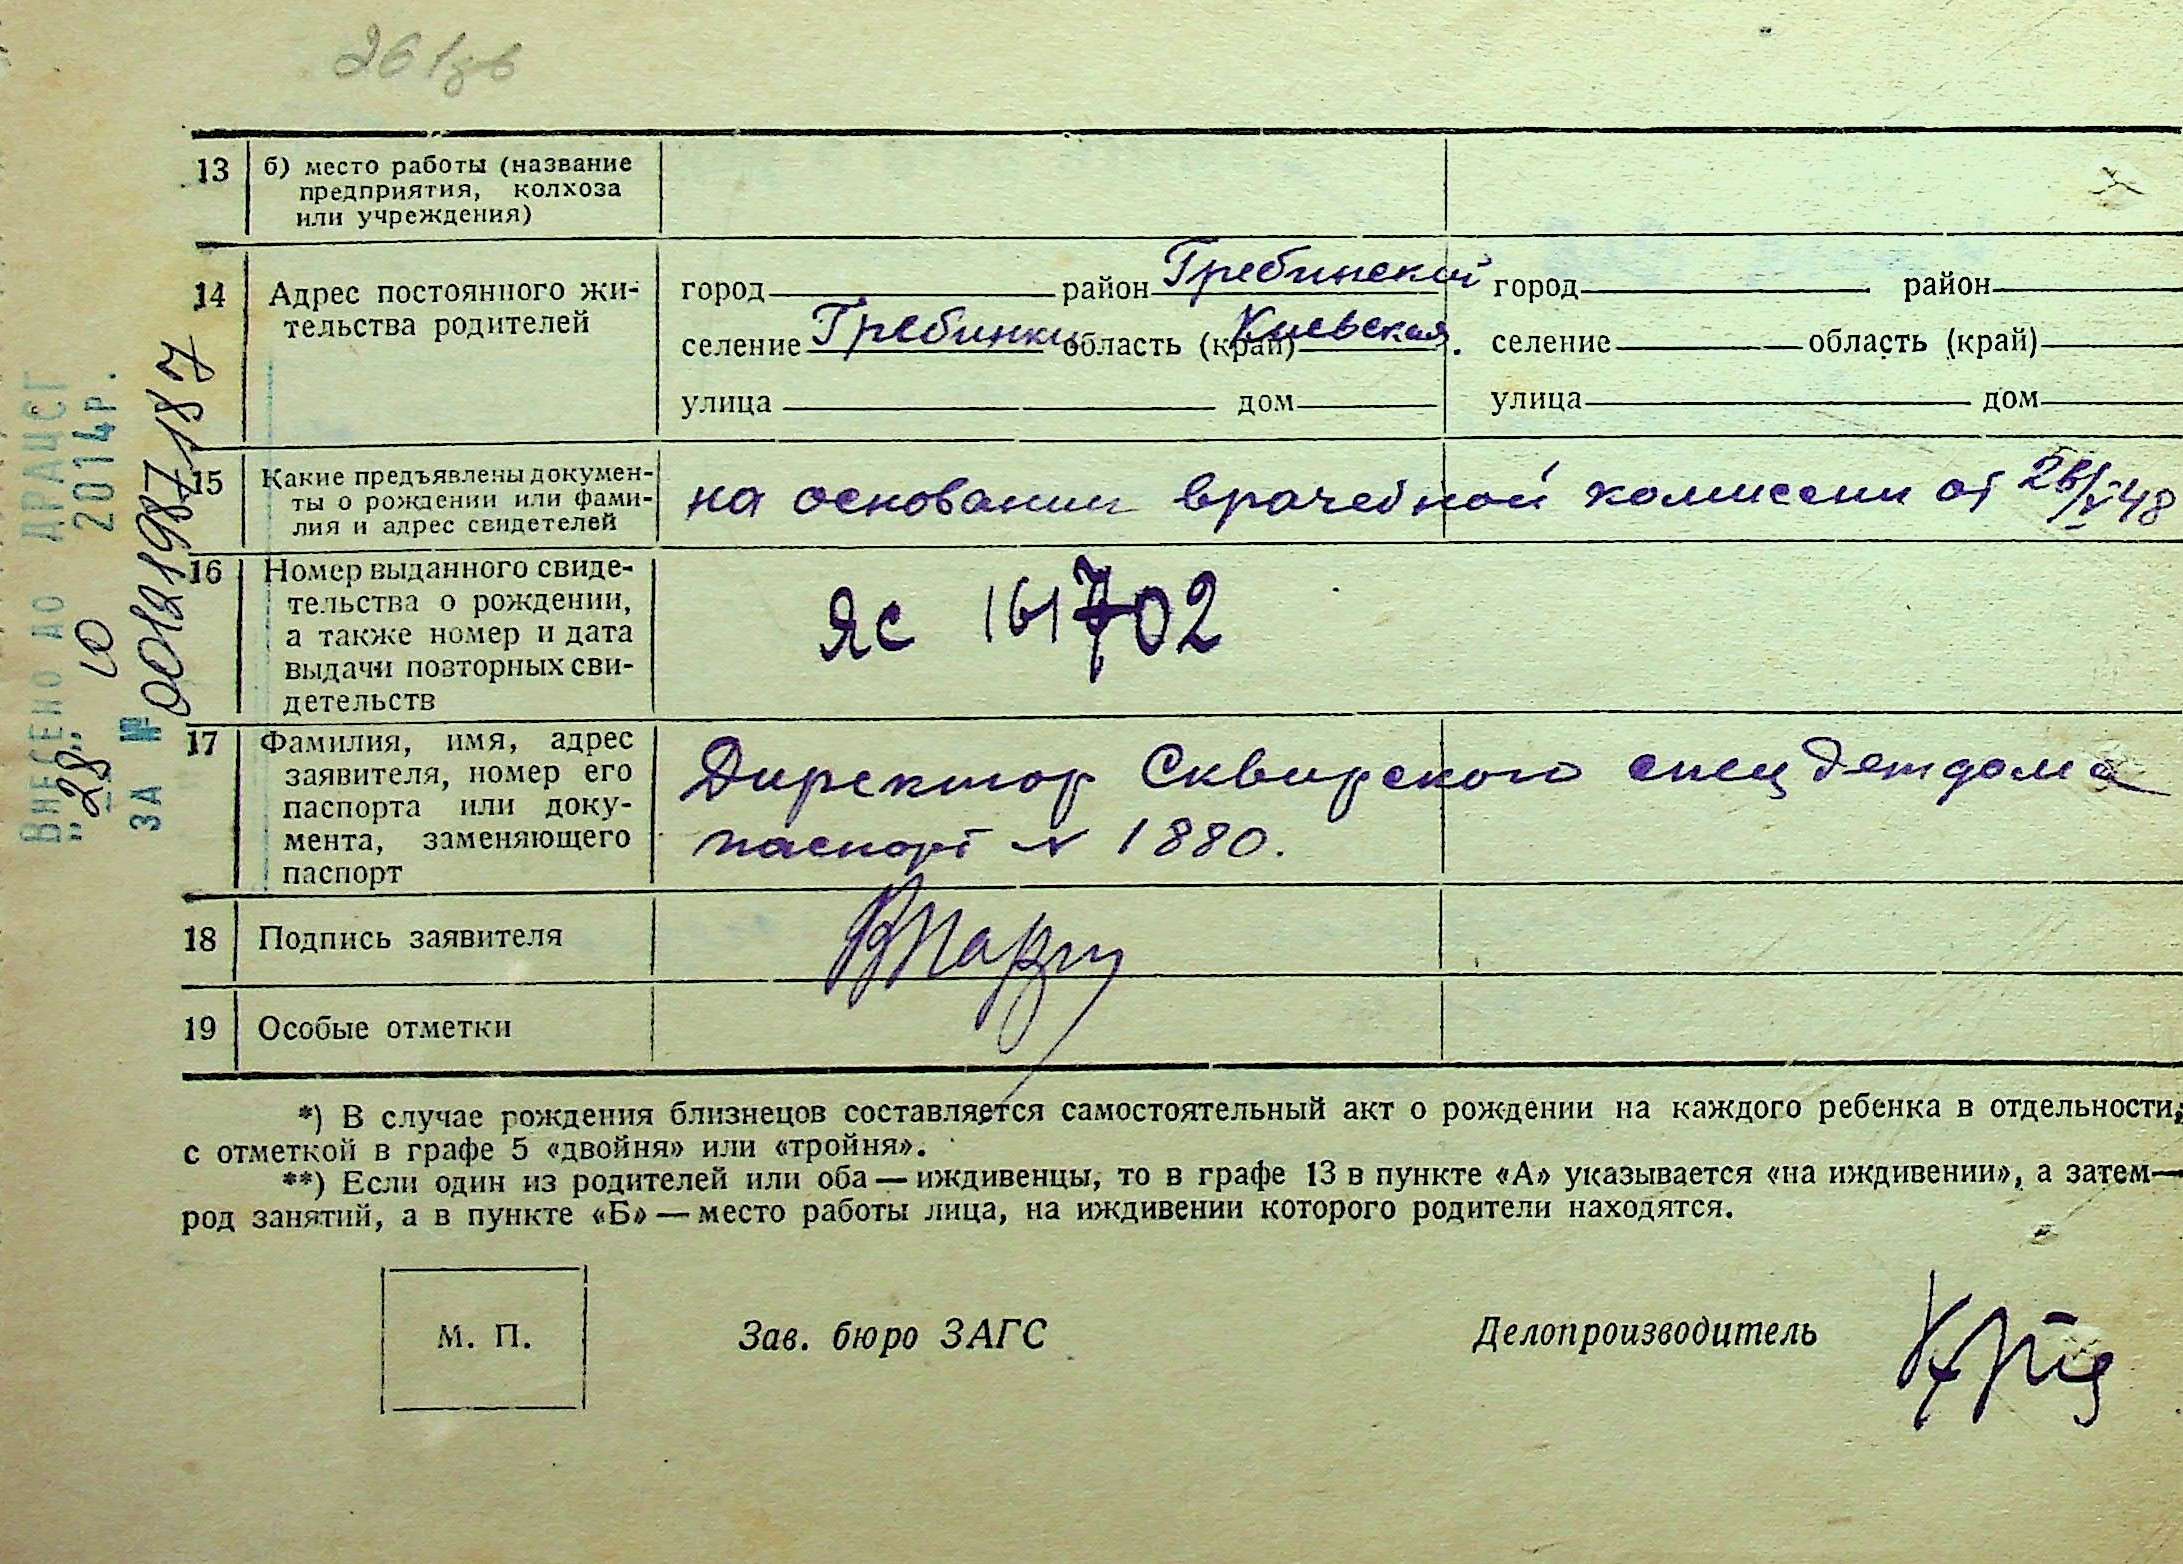 261зв
13 б) место работы (название
предприятия, колхоза
или учреждения)
14 Адрес постоянного жи-
тельства родителей
город район Гребинский
селение Гребинки область (край) Киевская.
улица дом
город район
селение область (край)
улица дом
15 Какие предъявлены докумен-
ты о рождении или фами-
лия и адрес свидетелей
на основании врачебной комиссии от 26/V-48
16 Номер выданного свиде-
тельства о рождении,
а также номер и дата
выдачи повторных сви-
детельств
ЯС 161702
17 Фамилия, имя, адрес
заявителя, номер его
паспорта или доку-
мента, заменяющего
паспорт
Директор Сквирского спец детдома
паспорт N 1880.
18 Подпись заявителя
19 Особые отметки
*) В случае рождения близнецов составляется самостоятельный акт о рождении на каждого ребенка в отдельности,
с отметкой в графе 5 «двойня» или «тройня».
**) Если один из родителей или оба — иждивенцы, то в графе 13 в пункте «А» указывается «на иждивении», а затем—
род занятий, а в пункте «Б» — место работы лица, на иждивении которого родители находятся.
М. П.
Зав. бюро ЗАГС
Делопроизводитель
ВНЕСЕНО ДО ДРАЦСГ
"28" 10 2014р.
ЗА № 00121987187